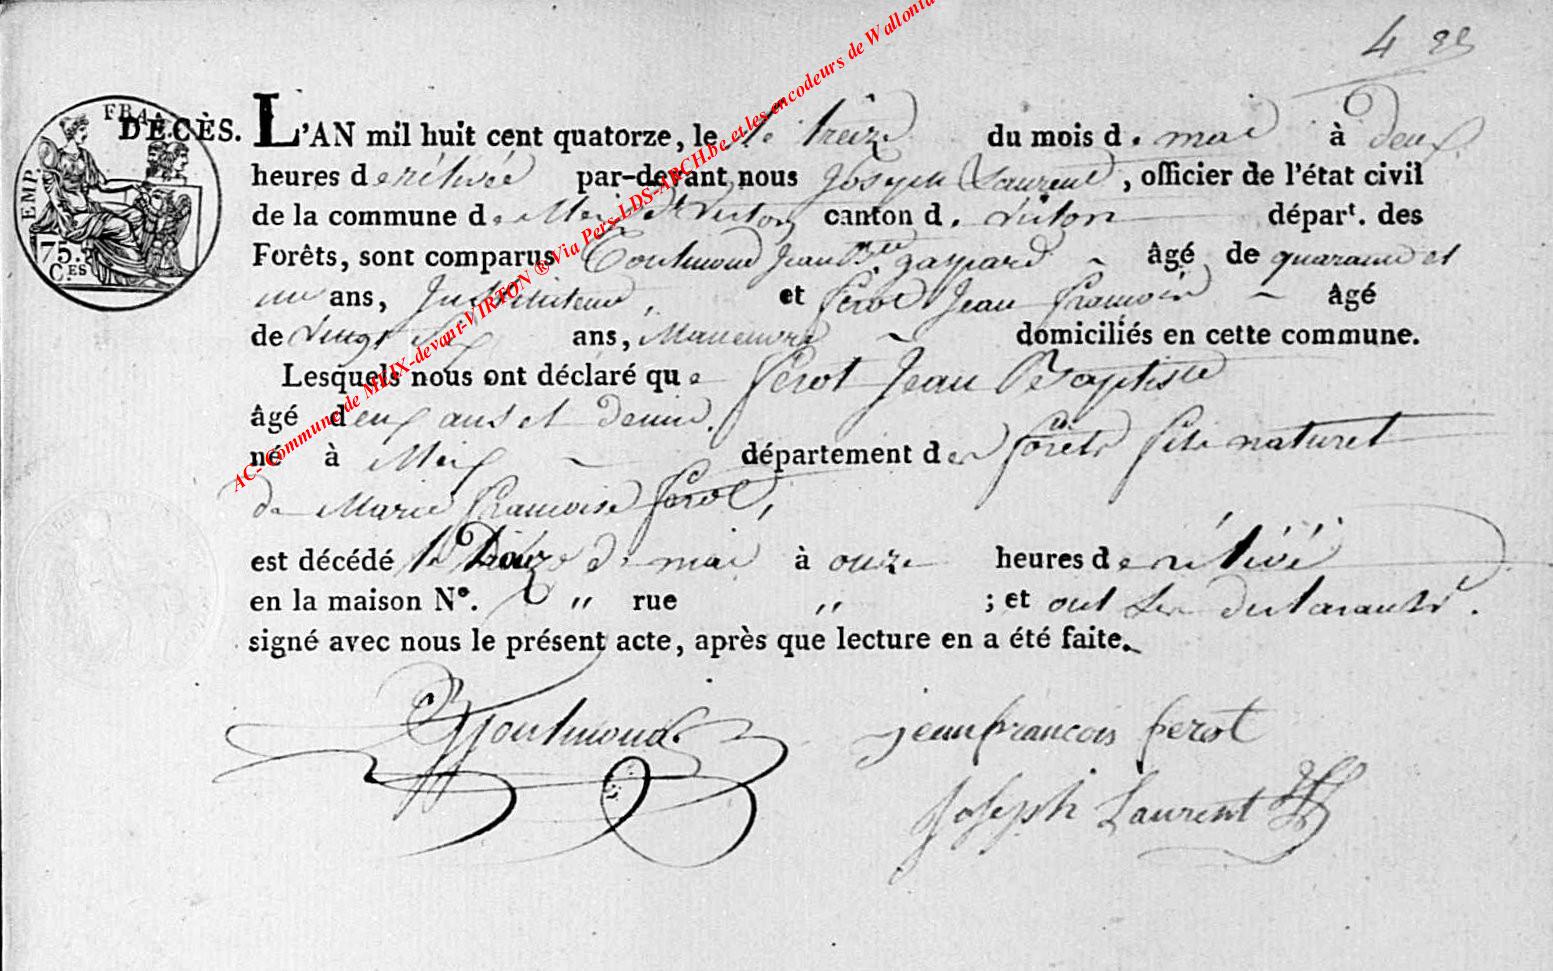 4
FRA
EMP.
75.
CES
DÉCÈS. L'AN mil huit cent quatorze, le le treize du mois de mai à deux
heures de rélevée par-devant nous Joseph Laurent, officier de l'état civil
de la commune de Meix dt virton canton de virton départ. des
Forêts, sont comparus Goutmoud Jean Bte gaspard âgé de quarante et
un ans, Instituteur, et ferot Jean françois âgé
de vingt six ans, Maneuvre domiciliés en cette commune.
Lesquels nous ont déclaré que ferot Jean Baptiste
âgé deux ans et demi.
né à Meix département des forêts fils naturel
de Marie francoise ferot,
est décédé le Douze de mai à onze heures de rélévé
en la maison N°. " rue " ; et ont les declarants
signé avec nous le présent acte, après que lecture en a été faite.
Goutmoud
jean francois ferot
Joseph Laurent
AC- Commune de MEIX-devant-VIRTON ® Via Pers-LDS-ARCH.be et les encodeurs de Wallonia